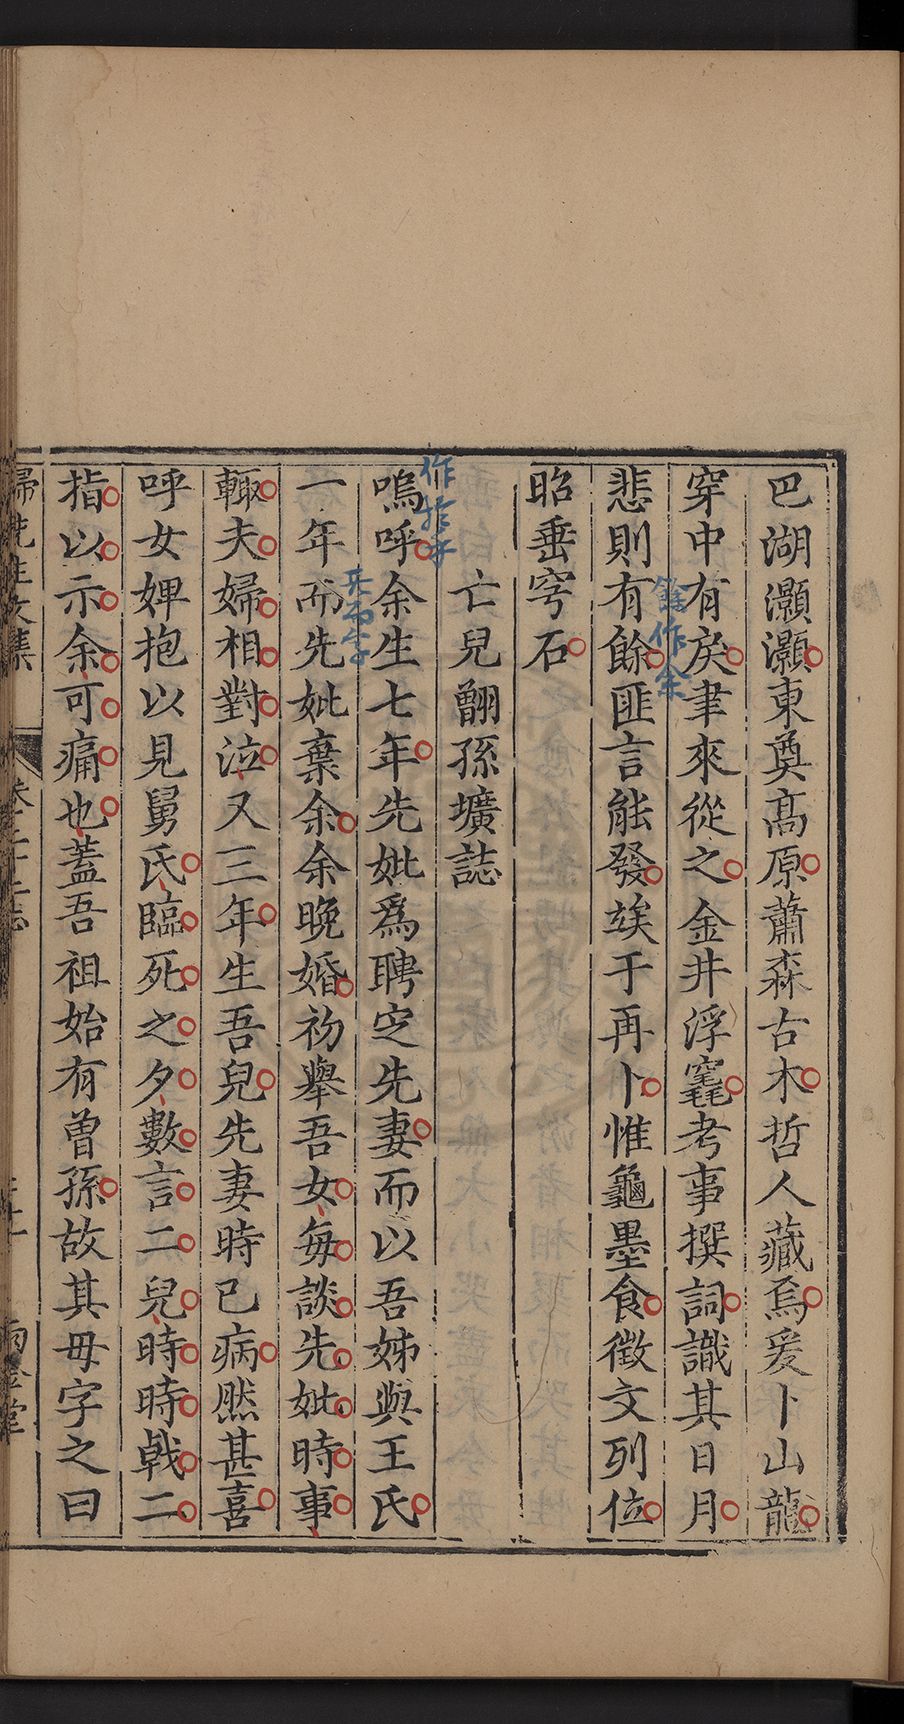 巴湖灝灝東奠高原蕭森古木哲人藏焉爰卜山龍
穿中有矦聿來從之金井浮竁考事撰詞識其日月
餘作余
悲則有餘匪言能發竢于再卜惟龜墨食徵文列位
昭垂穹石
亡兒翿孫壙誌
嗚呼余生七年先妣爲聘定先妻而以吾姊與王氏
一年而先妣棄余余晚婚初舉吾女每談先妣時事
輙夫婦相對泣又三年生吾兒先妻時已病然甚喜
呼女婢抱以見舅氏臨死之夕數言二兒時時戟二
指以示余可痛也蓋吾祖始有曾孫故其母字之曰